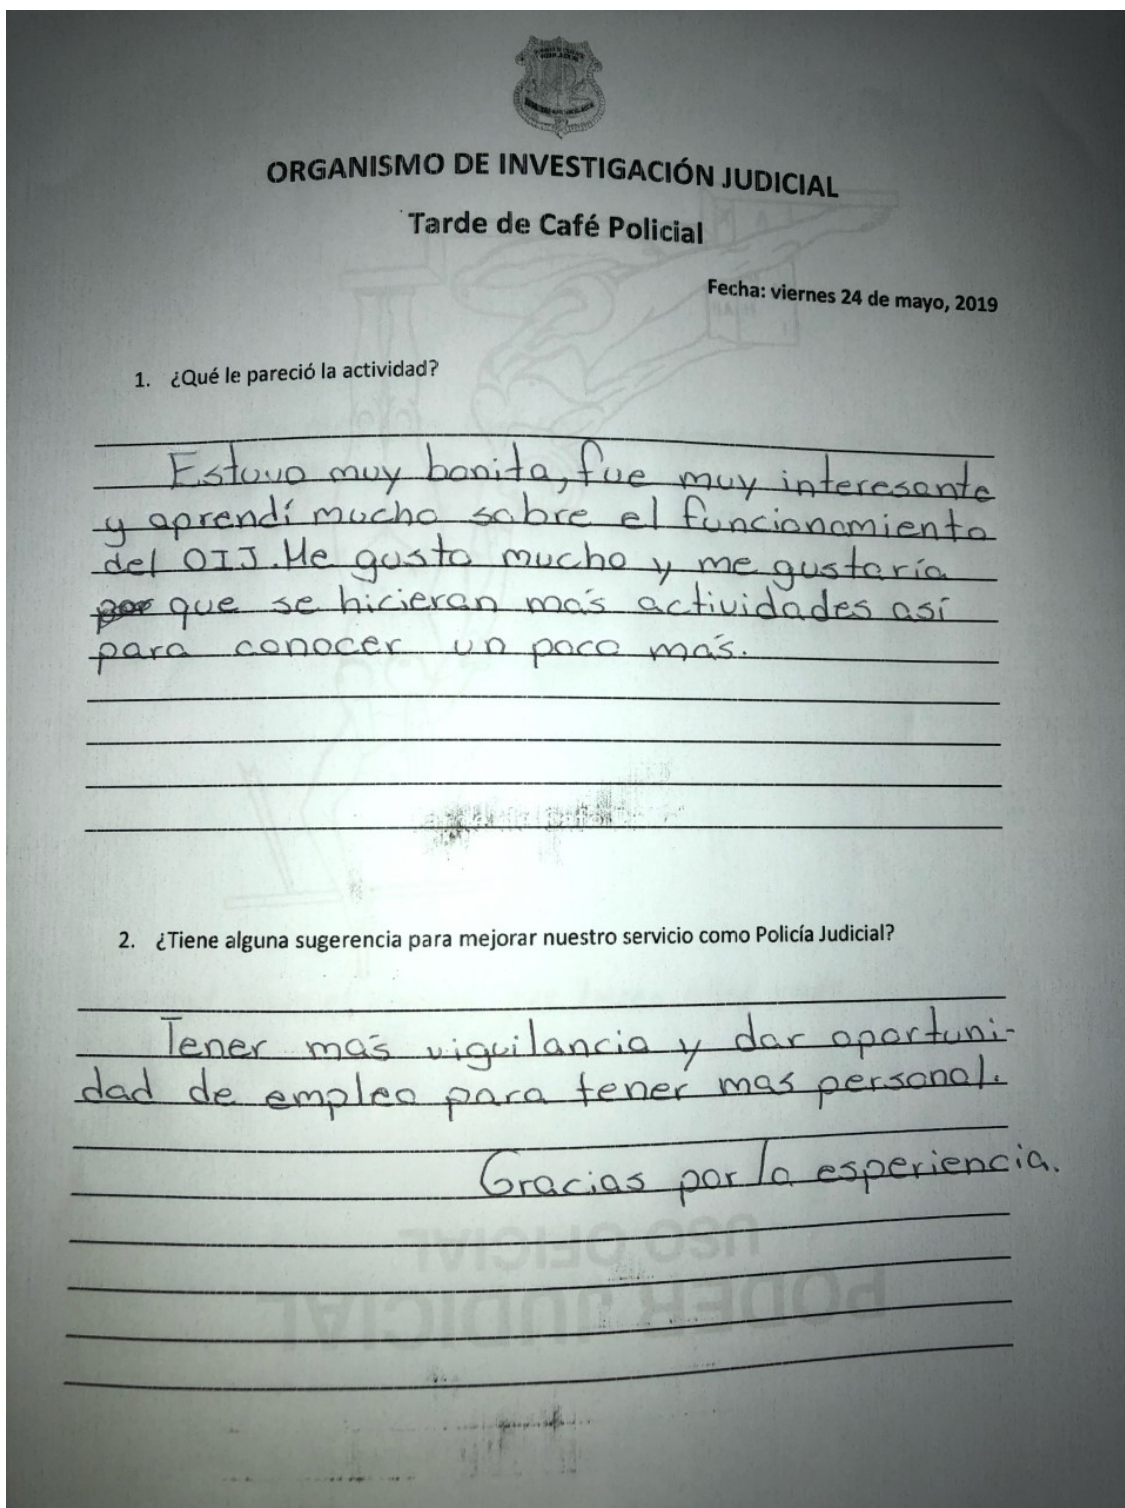 ORGANISMO DE INVESTIGACIÓN JUDICIAL
Tarde de Café Policial
Fecha: viernes 24 de mayo, 2019
1. ¿Qué le pareció la actividad?
Estuvo muy bonita, fue muy interesante
y aprendí mucho sobre el funcionamiento
del OIJ. Me gusto mucho y me gustaría
que se hicieran más actividades así
para conocer un poco más.
2. ¿Tiene alguna sugerencia para mejorar nuestro servicio como Policía Judicial?
Tener más viguilancia y dar oportuni-
dad de empleo para tener mas personal.
Gracias por la esperiencia.
USO OFICIAL
PODER JUDICIAL